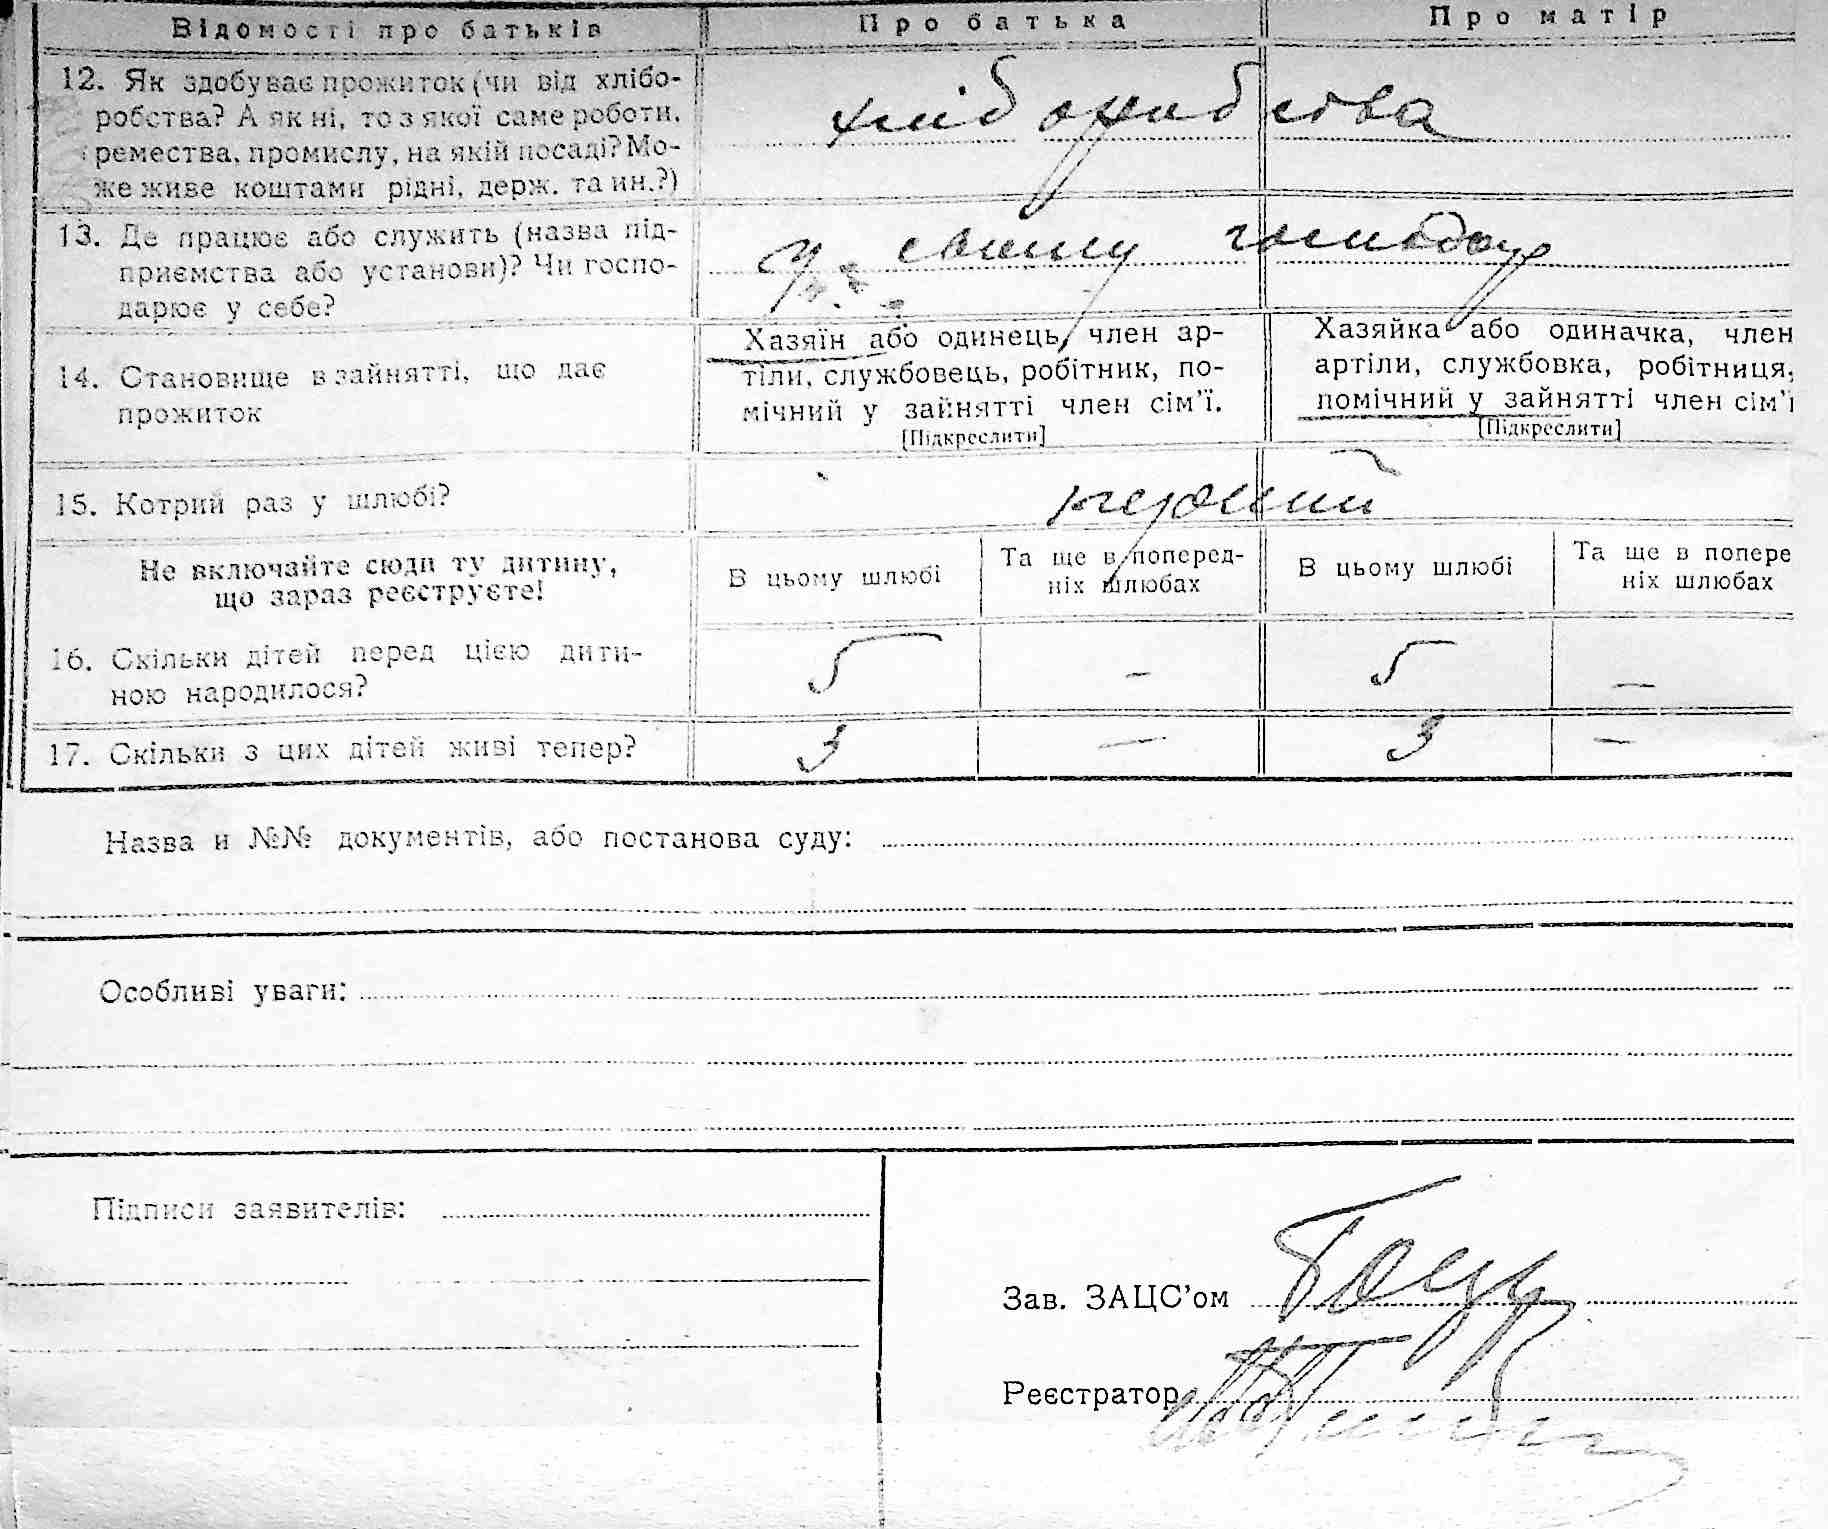 Відомості про батьків Про батька Про матір
12. Як здобуває прожиток (чи від хлібо-
робства? А як ні, то з якої саме роботи,
ремества, промислу, на якій посаді? Мо-
же живе коштами рідні, держ. та ин.?)
хліборобства
13. Де працює або служить (назва під-
приємства або установи)? Чи госпо-
дарює у себе?
у своєму господар
14. Становище в зайнятті, що дає
прожиток
Хазяїн або одинець, член ар-
тіли, службовець, робітник, по-
мічний у зайнятті член сім'ї.
[Підкреслити]
Хазяйка або одиначка, член
артіли, службовка, робітниця,
помічний у зайнятті член сім'ї
[Підкреслити]
15. Котрий раз у шлюбі?
перший
Не включайте сюди ту дитину,
що зараз реєструєте!
В цьому шлюбі
Та ще в поперед-
ніх шлюбах
В цьому шлюбі
Та ще в попере
ніх шлюбах
16. Скільки дітей перед цією дити-
ною народилося?
5 – 5 –
17. Скільки з цих дітей живі тепер? 3 – 3 –
Назва и №№ документів, або постанова суду:
Особливі уваги:
Підписи заявителів:
Зав. ЗАЦС'ом
Реєстратор